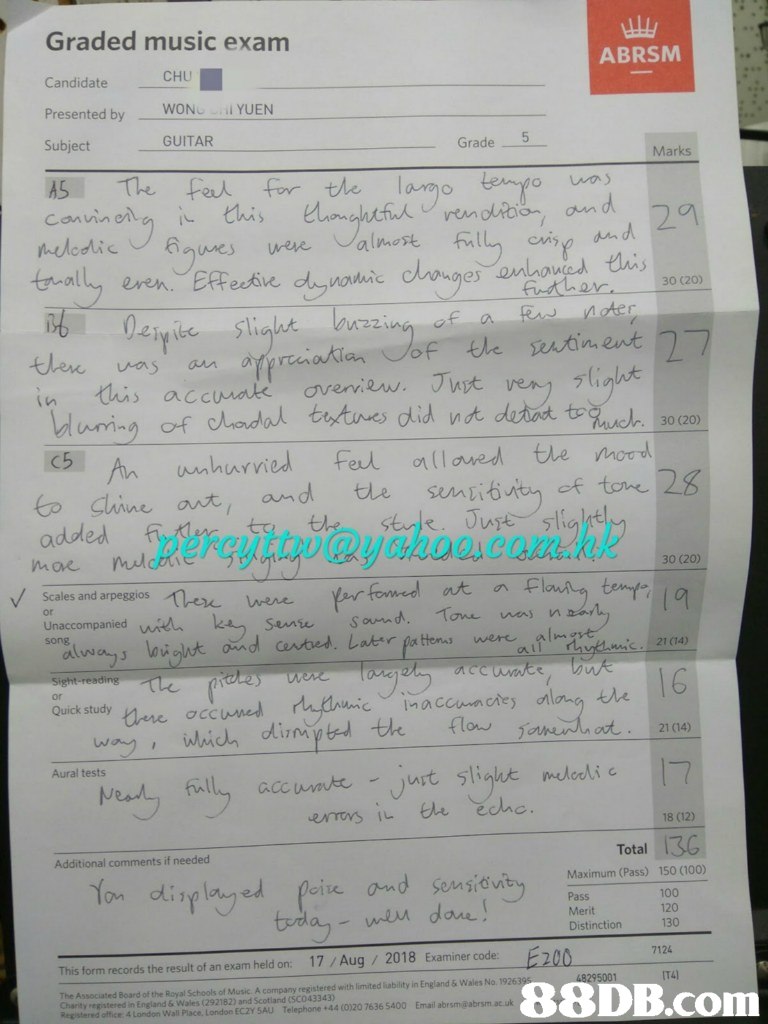 Graded music exam
ABRSM
Candidate CHU
Presented by WONG HI YUEN
Subject GUITAR Grade 5
Marks
A5 The feel for the largo tempo was
convincing in this thoughtful rendition, and
melodic figures were almost fully crisp and
tonally even. Effective dynamic changes enhanced this
further.
29
30 (20)
B6 Despite slight buzzing of a few notes,
there was an appreciation of the sentiment
in this accurate overview. Just very slight
blurring of chordal textures did not detract too
much.
27
30 (20)
C5 An unhurried feel allowed the mood
to shine out, and the sensitivity of tone
added further to the style. Just slightly
more melodic singing was
28
30 (20)
percyttw@yahoo.com.hk
✓ Scales and arpeggios
or
Unaccompanied
song
These were performed at a flowing tempo,
with key sense sound. Tone was nearly
always bright and centred. Later patterns were almost
all rhythmic.
19
21 (14)
Sight-reading
or
Quick study
The pitches were largely accurate, but
there occurred rhythmic inaccuracies along the
way, which disrupted the flow somewhat.
16
21 (14)
Aural tests
Nearly fully accurate - just slight melodic
errors in the echo.
17
18 (12)
Total 136
Additional comments if needed
Maximum (Pass) 150 (100)
You displayed poise and sensitivity
today - well done!
Pass 100
Merit 120
Distinction 130
This form records the result of an exam held on: 17 / Aug / 2018 Examiner code: E200
7124
48295001
(T4)
The Associated Board of the Royal Schools of Music. A company registered with limited liability in England & Wales No. 1926395
Charity registered in England & Wales (292182) and Scotland (SC043343)
Registered office: 4 London Wall Place, London EC2Y 5AU Telephone +44 (0)20 7636 5400 Email abrsm@abrsm.ac.uk
88DB.com